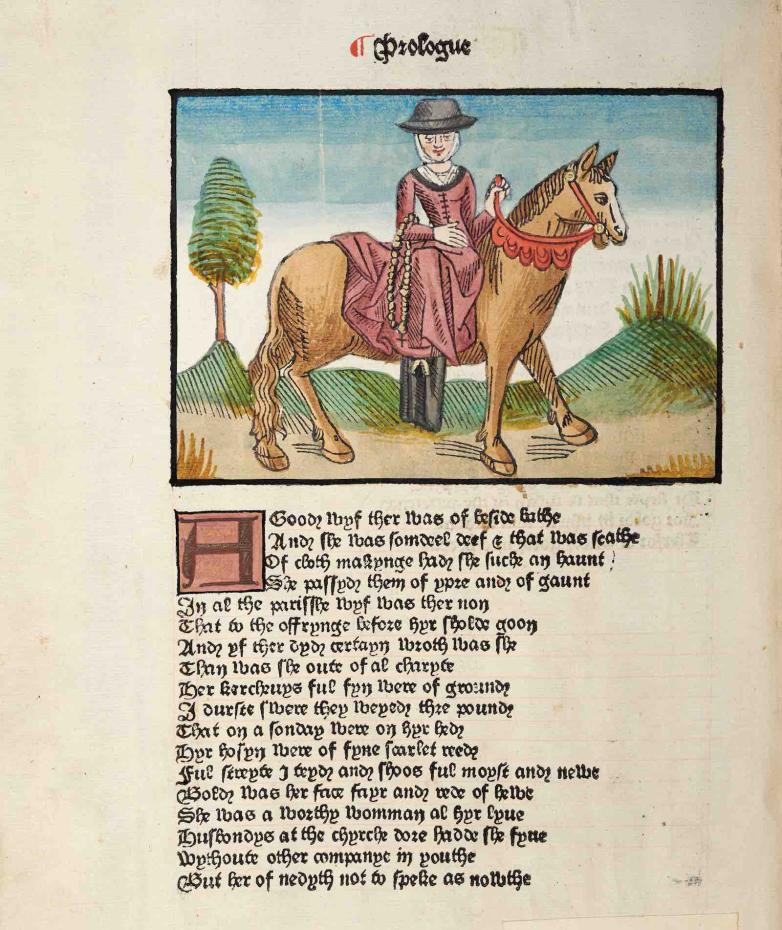 ¶ Prologue
A Goode wyf ther was of beside bathe
And she was somdeel deef & that was scathe
Of cloth makynge had she suche an haunt
She passyd them of ypre and of gaunt
In al the parisshe wyf was ther non
That to the offrynge before hyr sholde goon
And yf ther dyd certayn wroth was she
Than was she oute of al charyte
Her kercheuys ful fyn were of ground
I durste swere they weyed thre pound
That on a sonday were on hyr hed
Hyr hosyn were of fyne scarlet reed
Ful streyte I teyd and shoos ful moyst and newe
Bold was her face fayr and rede of hewe
She was a worthy womman al hyr lyue
Husbondys at the chyrche dore hadde she fyue
Wythoute other companye in youthe
But her of nedyth not to speke as nowthe